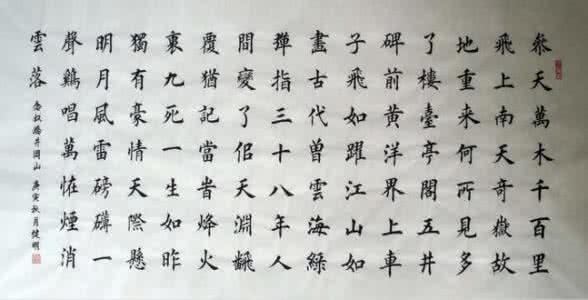 叅天萬木千百里
飛上南天奇嶽故
地重来何所見多
了樓臺亭閣五井
碑前黄洋界上車
子飛如躍江山如
畫古代曾雲海緑
彈指三十八年人
間變了佀天淵飜
覆猶記當旹烽火
裏九死一生如昨
獨有豪情天際懸
明月風雷磅礴一
聲鷄唱萬恠煙消
雲落
念奴嬌井岡山 庚寅秋月健明